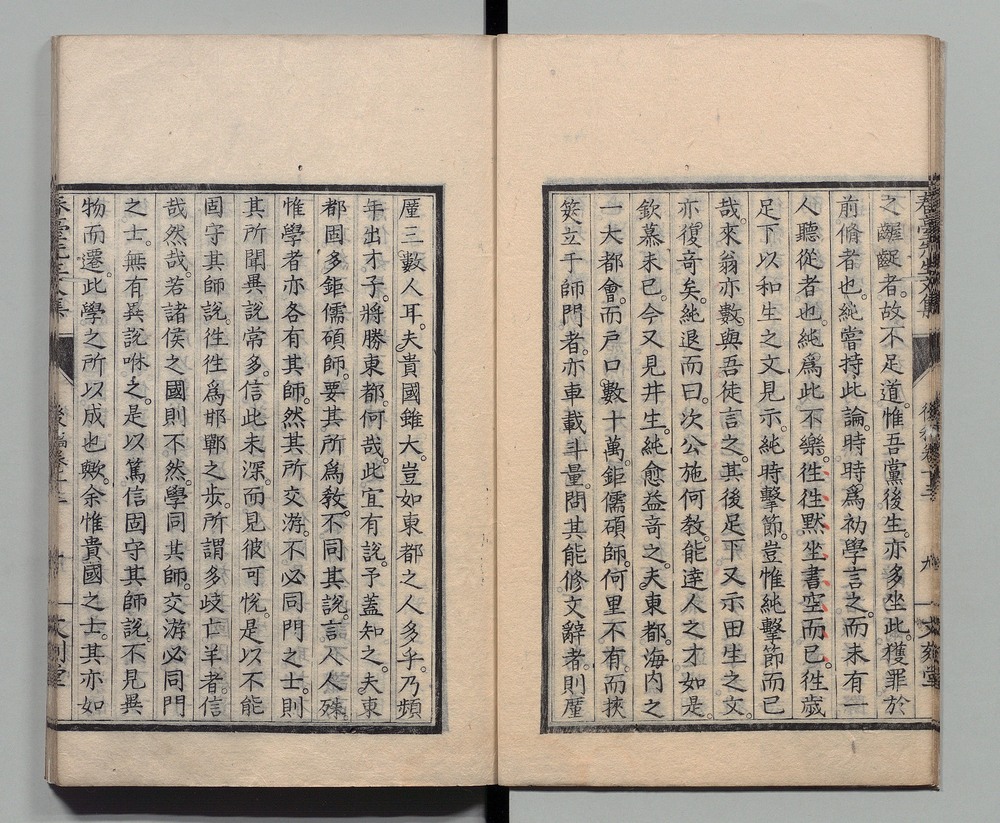 之齷齪者。故不足道。惟吾黨後生。亦多坐此。獲罪於
前脩者也。純嘗持此論。時時爲初學言之。而未有一
人聽從者也。純爲此不樂。徃徃默坐書空而已。徃歲
足下以和生之文見示。純時擊節。豈惟純擊節而已
哉。來翁亦數與吾徒言之。其後足下又示田生之文。
亦復竒矣。純退而曰。次公施何教。能達人之才如是。
欽慕未已。今又見井生。純愈益竒之。夫東都。海内之
一大都會。而戸口數十萬。鉅儒碩師。何里不有。而挾
筴立于師門者。亦車載斗量。問其能修文辭者。則厪
厪三數人耳。夫貴國雖大。豈如東都之人多乎。乃頻
年出才子。將勝東都。何哉。此宜有說。予蓋知之。夫東
都固多鉅儒碩師。要其所爲教。不同其說。言人人殊。
惟學者亦各有其師。然其所交游。不必同門之士。則
其所聞異說常多。信此未深。而見彼可悅。是以不能
固守其師說。徃徃爲邯鄲之步。所謂多歧亡羊者。信
哉然哉。若諸侯之國則不然。學同其師。交游必同門
之士。無有異說咻之。是以篤信固守其師說。不見異
物而遷。此學之所以成也歟。余惟貴國之士。其亦如
後編卷十三
九
文刻堂